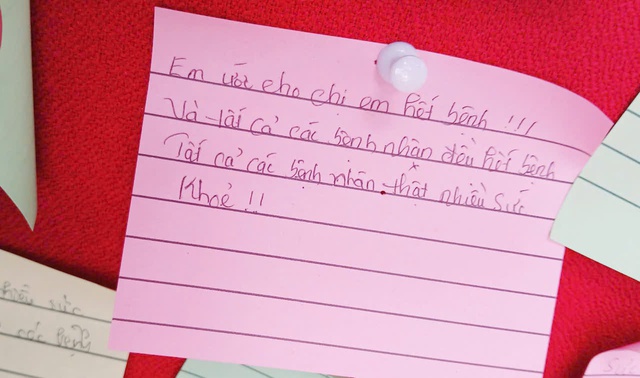 Em ước cho chị em hết bệnh !!!
Và tất cả các bệnh nhân đều hết bệnh
Tất cả các bệnh nhân thật nhiều sức
Khoẻ !!
nhiều sức
các bệnh